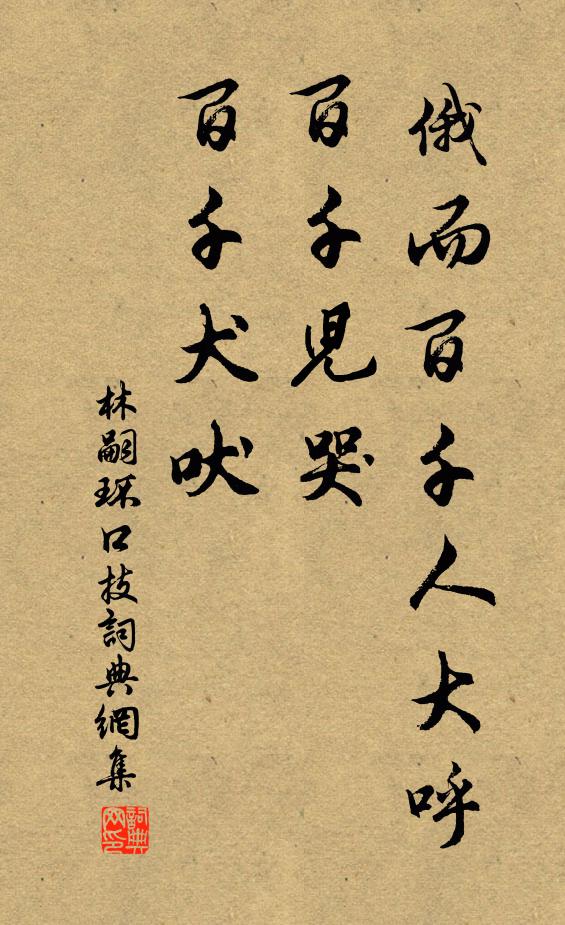 俄而百千人大呼
百千児哭
百千犬吠
林嗣環口技詞典網集
詞典网印